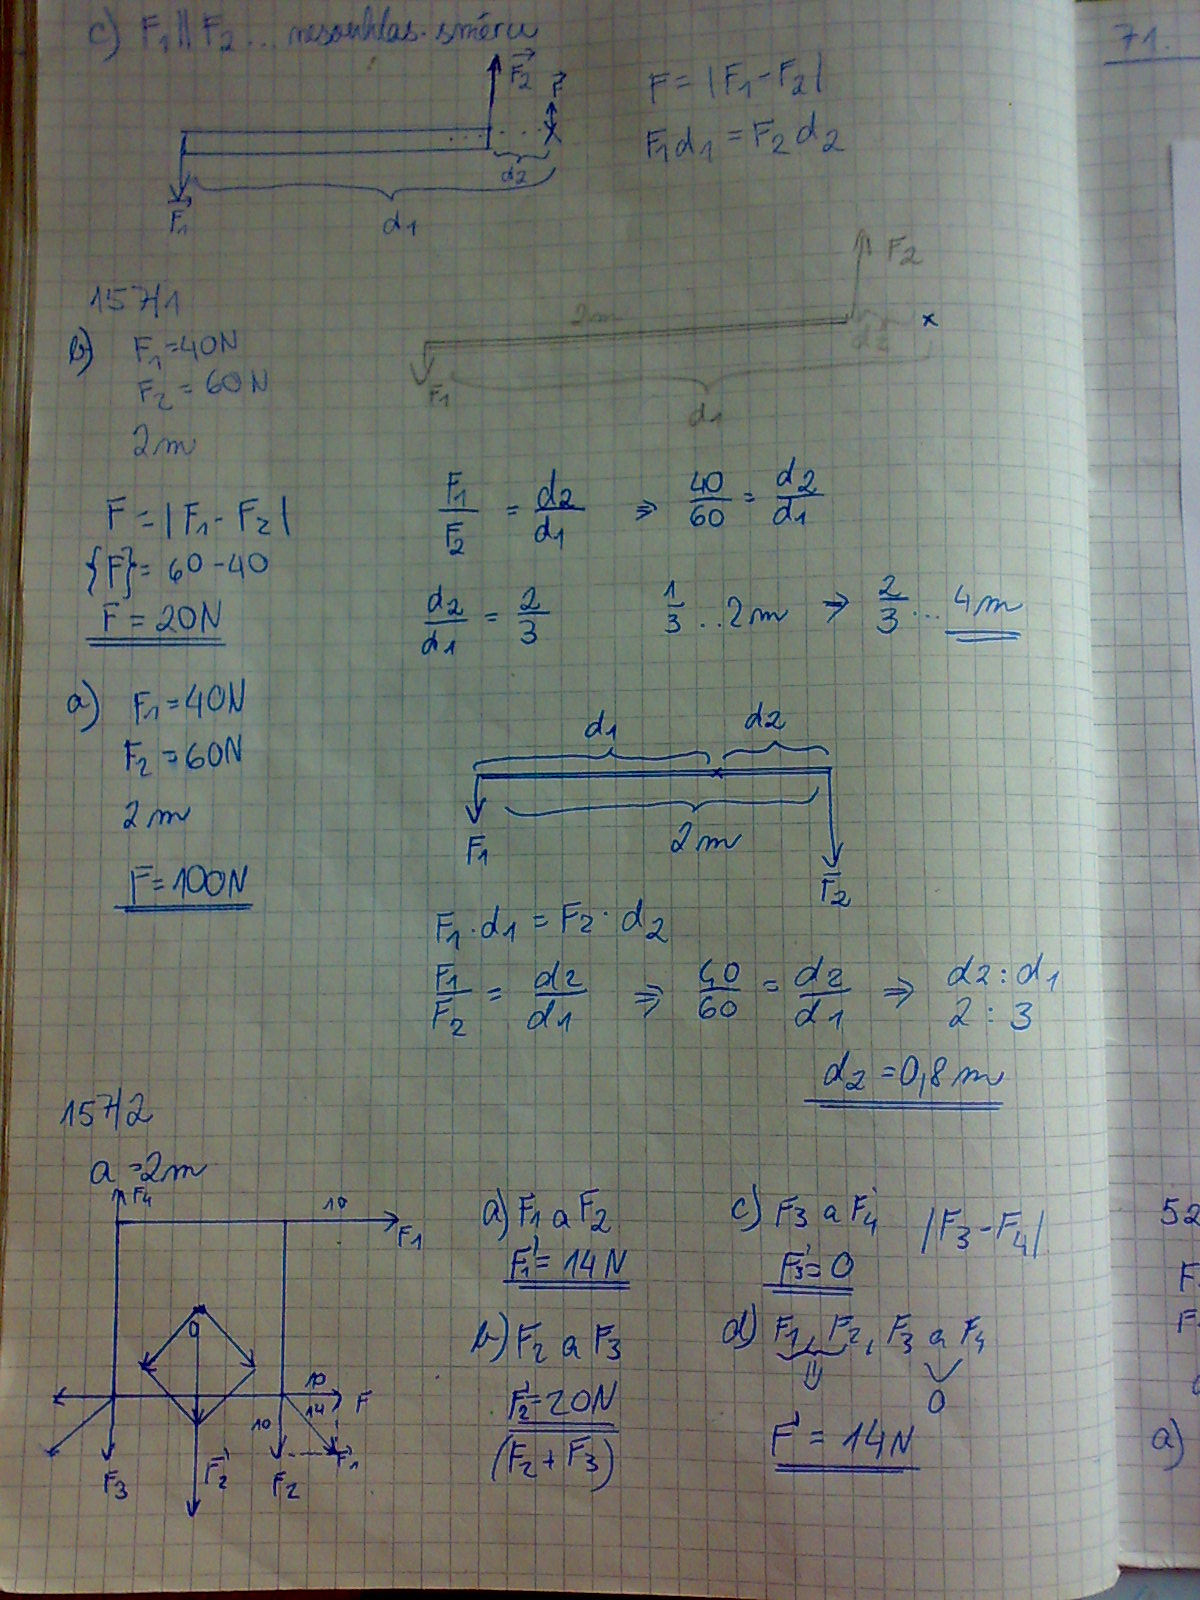 c) F₁ || F₂ ... nesouhlas. směru
F₂
F
F₁
d₂
d₁
F = |F₁ - F₂|
F₁d₁ = F₂d₂
157/1
b) F₁ = 40N
F₂ = 60N
2m
F₂
2m
d₂
F₁
d₁
F = |F₁ - F₂|
{F} = 60 - 40
F = 20N
F₁/F₂ = d₂/d₁ ⇒ 40/60 = d₂/d₁
d₂/d₁ = 2/3 1/3 .. 2m ⇒ 2/3 ... 4m
a) F₁ = 40N
F₂ = 60N
2m
F = 100N
d₁ d₂
2m
F₁
F₂
F₁ · d₁ = F₂ · d₂
F₁/F₂ = d₂/d₁ ⇒ 40/60 = d₂/d₁ ⇒ d₂ : d₁
2 : 3
d₂ = 0,8m
157/2
a = 2m
F₄
10
F₁
0
10
14
F
10
F₃
F₂'
F₂
F₁'
a) F₁ a F₂
F₁' = 14N
b) F₂ a F₃
F₂' = 20N
(F₂ + F₃)
c) F₃ a F₄ |F₃ - F₄|
F₃' = 0
d) F₁, F₂, F₃ a F₄
⇓ 0
F' = 14N
71.
52
F
F
a)